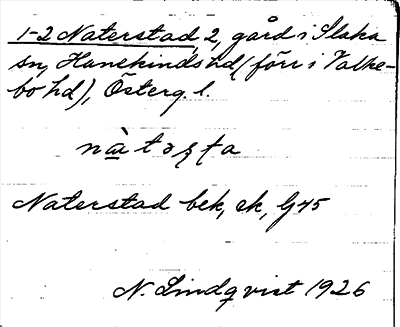 1-2 Naterstad, 2, gård i Slaka
sn, Hanekinds hd (förr i Valke-
bo hd), Österg. l.
Naterstad bek, ek, Gj 45
N. Lindqvist 1926